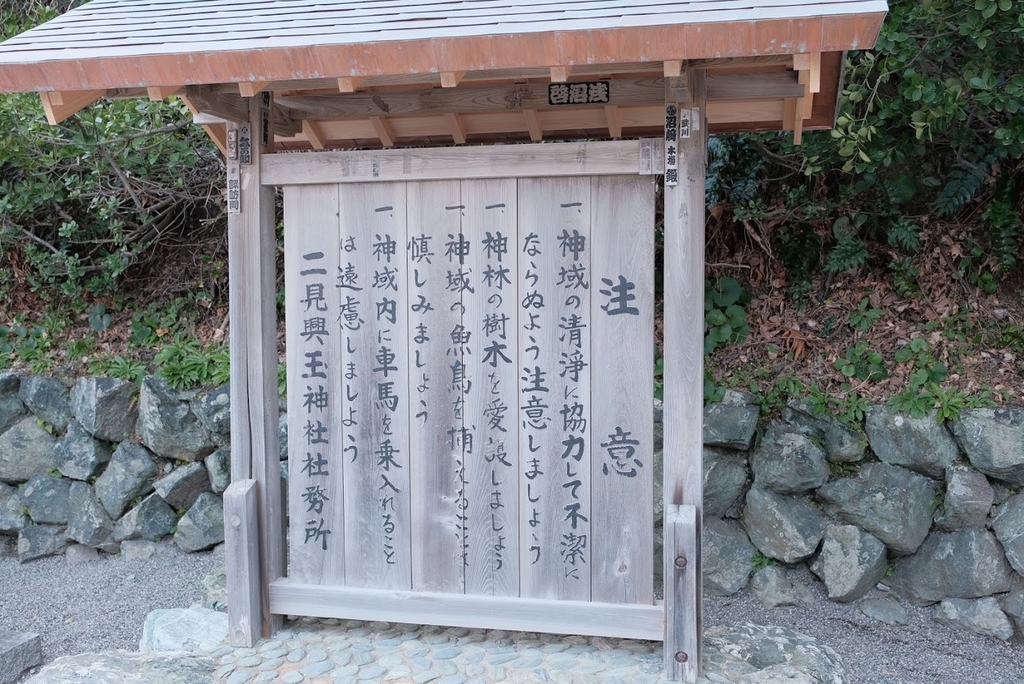 注意
一、神域の清浄に協力して不潔に
ならぬよう注意しましょう
一、神林の樹木を愛護しましょう
一、神域の魚鳥を捕えることは
慎しみましょう
一、神域内に車馬を乗入れること
は遠慮しましよう
二見興玉神社社務所
浅沼啓
諏訪間